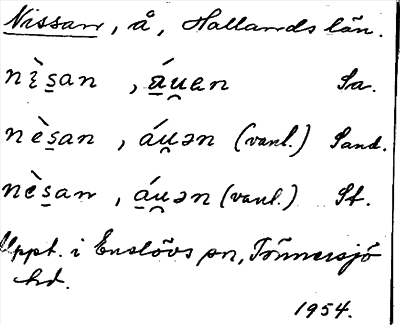 Nissan, å, Hallands län.
nì̀s̠an, á̠u̯en Sa.
nès̠an, áu̯ən (vanl.) Sand.
nès̠an, á̠u̯ən (vanl.) St.
Uppt. i Enslövs sn, Tönnersjö
hd.
1954.